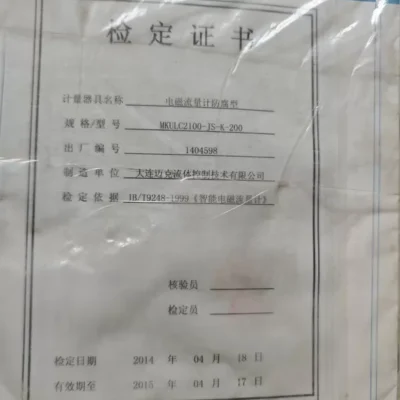 检定证书
计量器具名称 电磁流量计防腐型
规格/型号 MKULC2100-JS-K-200
出厂编号 1404598
制造单位 大连迈克流体控制技术有限公司
检定依据 JB/T9248-1999《智能电磁流量计》
核验员
检定员
检定日期 2014 年 04 月 18 日
有效期至 2015 年 04 月 17 日